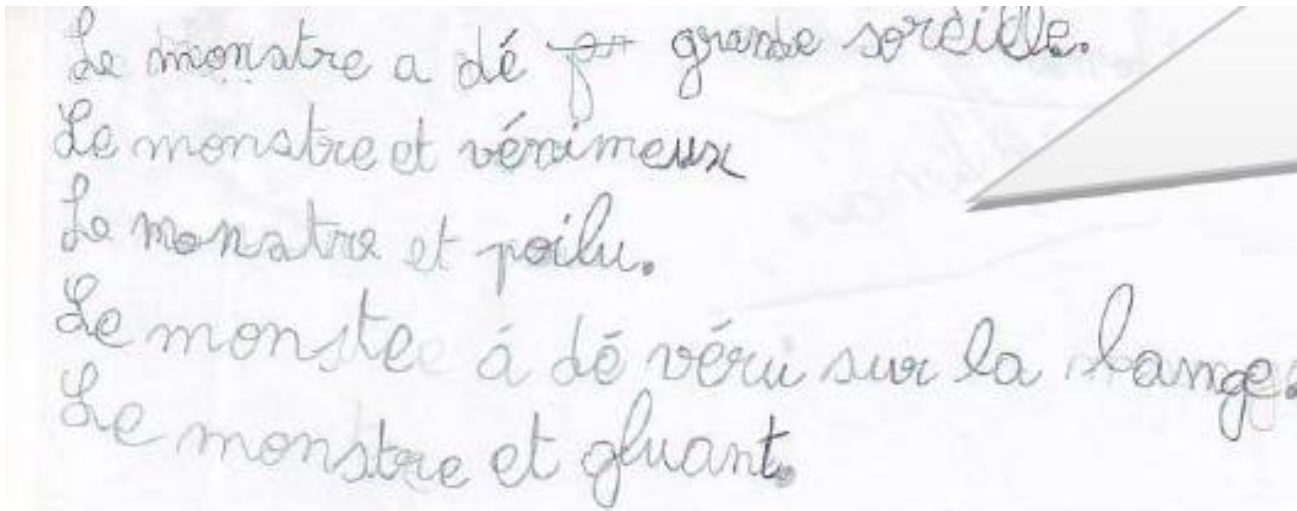 Le monstre a dé grande soreille.
Le monstre et vénimeux
Le monstre et poilu.
Le monste á dé véru sur la lange.
Le monstre et gluant.